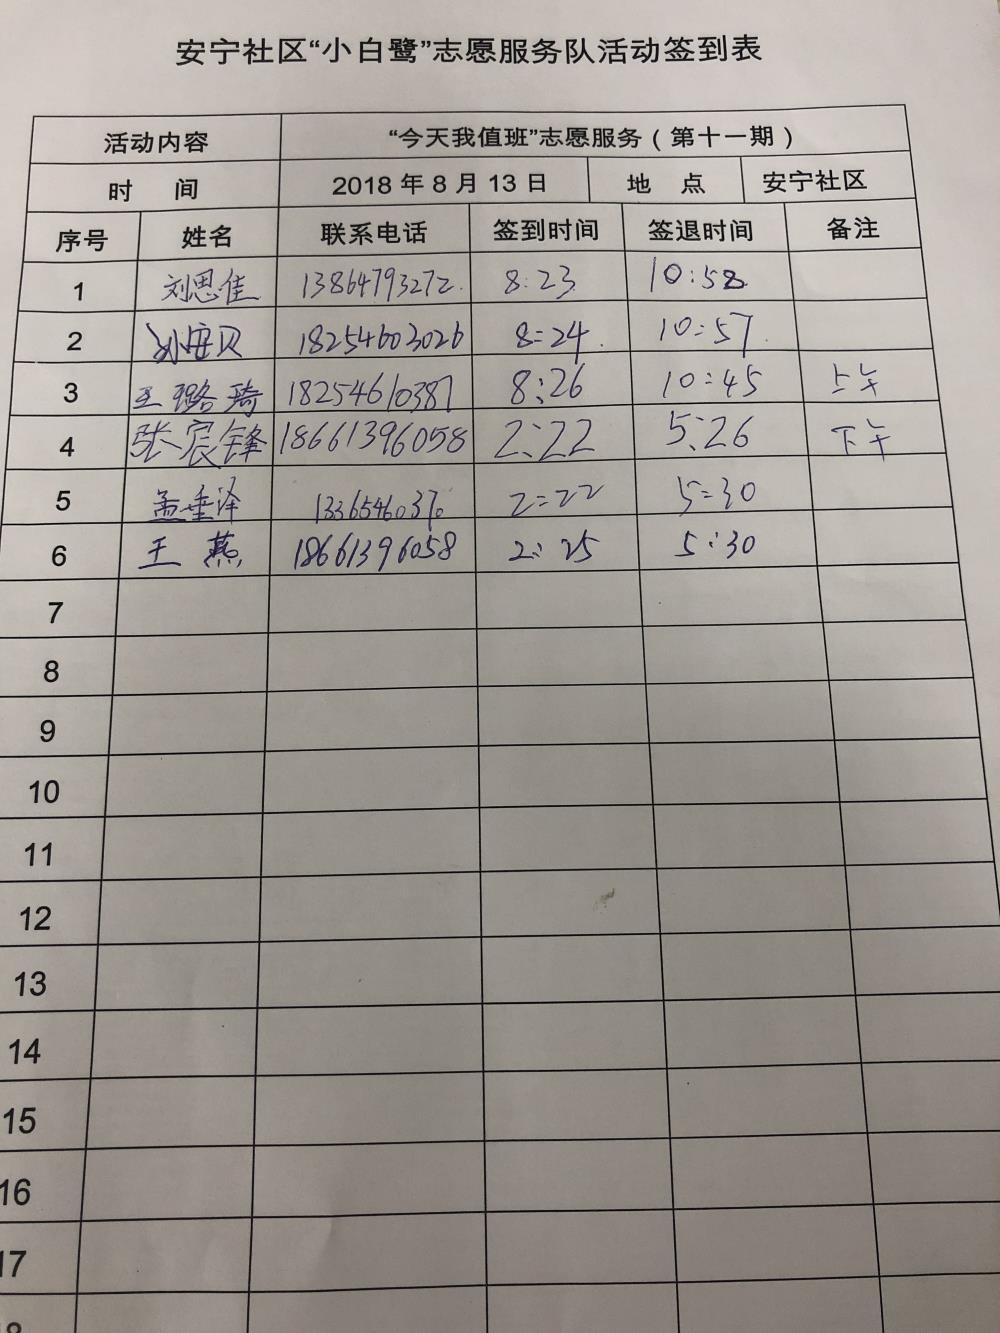 安宁社区“小白鹭”志愿服务队活动签到表
活动内容 “今天我值班”志愿服务（第十一期）
时 间 2018 年 8 月 13 日 地 点 安宁社区
序号 姓名 联系电话 签到时间 签退时间 备注
1 刘思佳 13864793272 8:23 10:58
2 18254603026 8:24 10:57
3 王璐琦 18254610387 8:26 10:45 上午
4 张宸锋 18661396058 2:22 5:26 下午
5 孟垂泽 2:22 5:30
6 王燕 18661396058 2:25 5:30
7
8
9
10
11
12
13
14
15
16
17